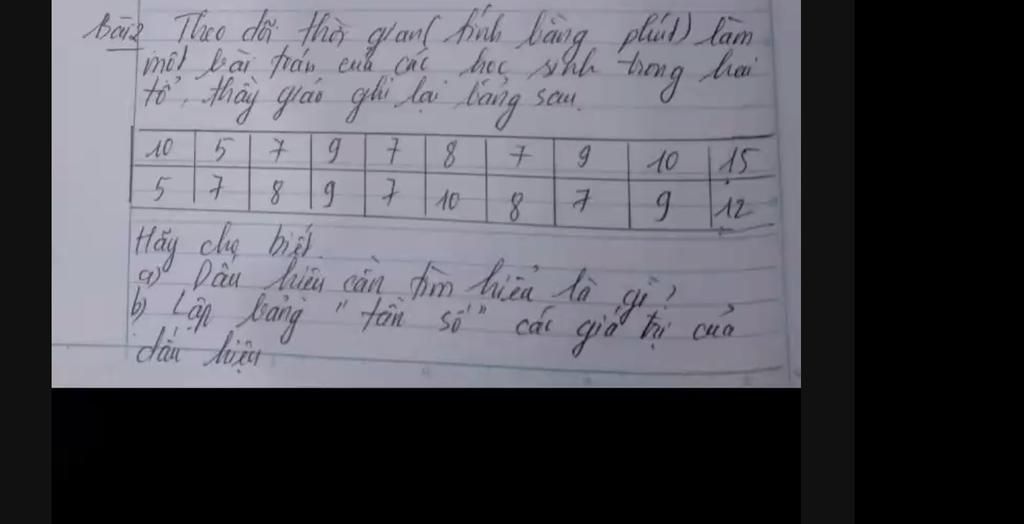 Bài 2 Theo dõi thời gian( tính bằng phút) làm
một bài toán của các học sinh trong hai
tổ, thầy giáo ghi lại bảng sau.
10 5 7 9 7 8 7 9 10 15
5 7 8 9 7 10 8 7 9 12
Hãy cho biết.
a) Dấu hiệu cần tìm hiểu là gì?
b) Lập bảng "tần số" các giá trị của
dấu hiệu